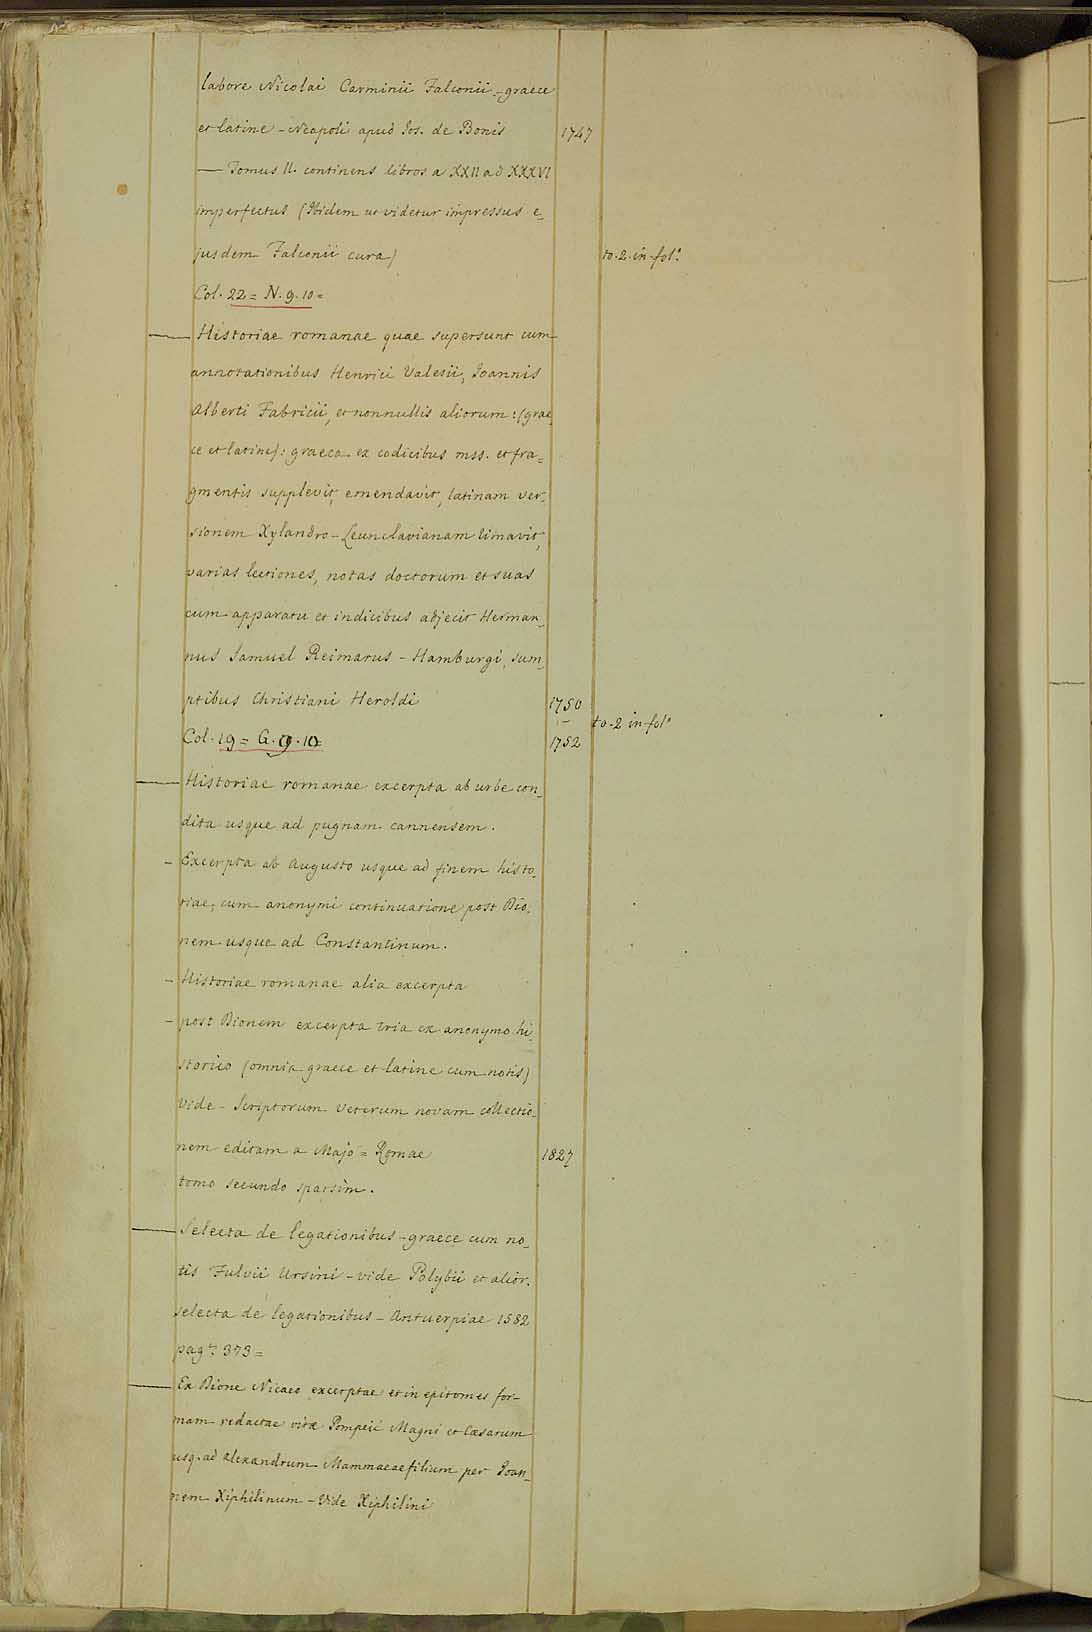 labore Nicolai Carminii Falconii - graece
et latine - Neapoli apud Jos. de Bonis 1747
— Tomus II. continens libros a XXII ad XXXVI
imperfectus (Ibidem ut videtur impressus e_
jusdem Falconii cura) to. 2. in-fol.º
Col. 22 = N. 9. 10 =
— Historiae romanae quae supersunt cum
annotationibus Henrici Valesii, Joannis
Alberti Fabricii, et nonnullis aliorum: (grae_
ce et latine): graeca ex codicibus mss. et fra=
gmentis supplevit, emendavit, latinam ver_
sionem Xylandro - Leunclavianam limavit,
varias lectiones, notas doctorum et suas
cum apparatu et indicibus adjecit Herman_
nus Samuel Reimarus - Hamburgi, sum_
ptibus Christiani Heroldi 1750
- to. 2 in fol.º
Col. 19 = G. 9. 10 = 1752
— Historiae romanae excerpta ab urbe con_
dita usque ad pugnam cannensem.
- Excerpta ab Augusto usque ad finem histo_
riae, cum anonymi continuatione post Dio_
nem usque ad Constantinum.
- Historiae romanae alia excerpta
- post Dionem excerpta tria ex anonymo hi_
storico (omnia graece et latine cum notis)
vide - Scriptorum veterum novam collectio_
nem editam a Majo = Romae 1827
tomo secundo sparsim.
— Selecta de legationibus - graece cum no_
tis Fulvii Ursini - vide Polybii et alior.
selecta de legationibus - Antuerpiae 1582
pag.ª 373 =
— Ex Dione Nicaeo excerptae et in epitomes for_
mam redactae vitæ Pompeii Magni et Cæsarum
usq. ad Alexandrum Mammaeae filium per Joan_
nem Xiphilinum - Vide Xiphilini